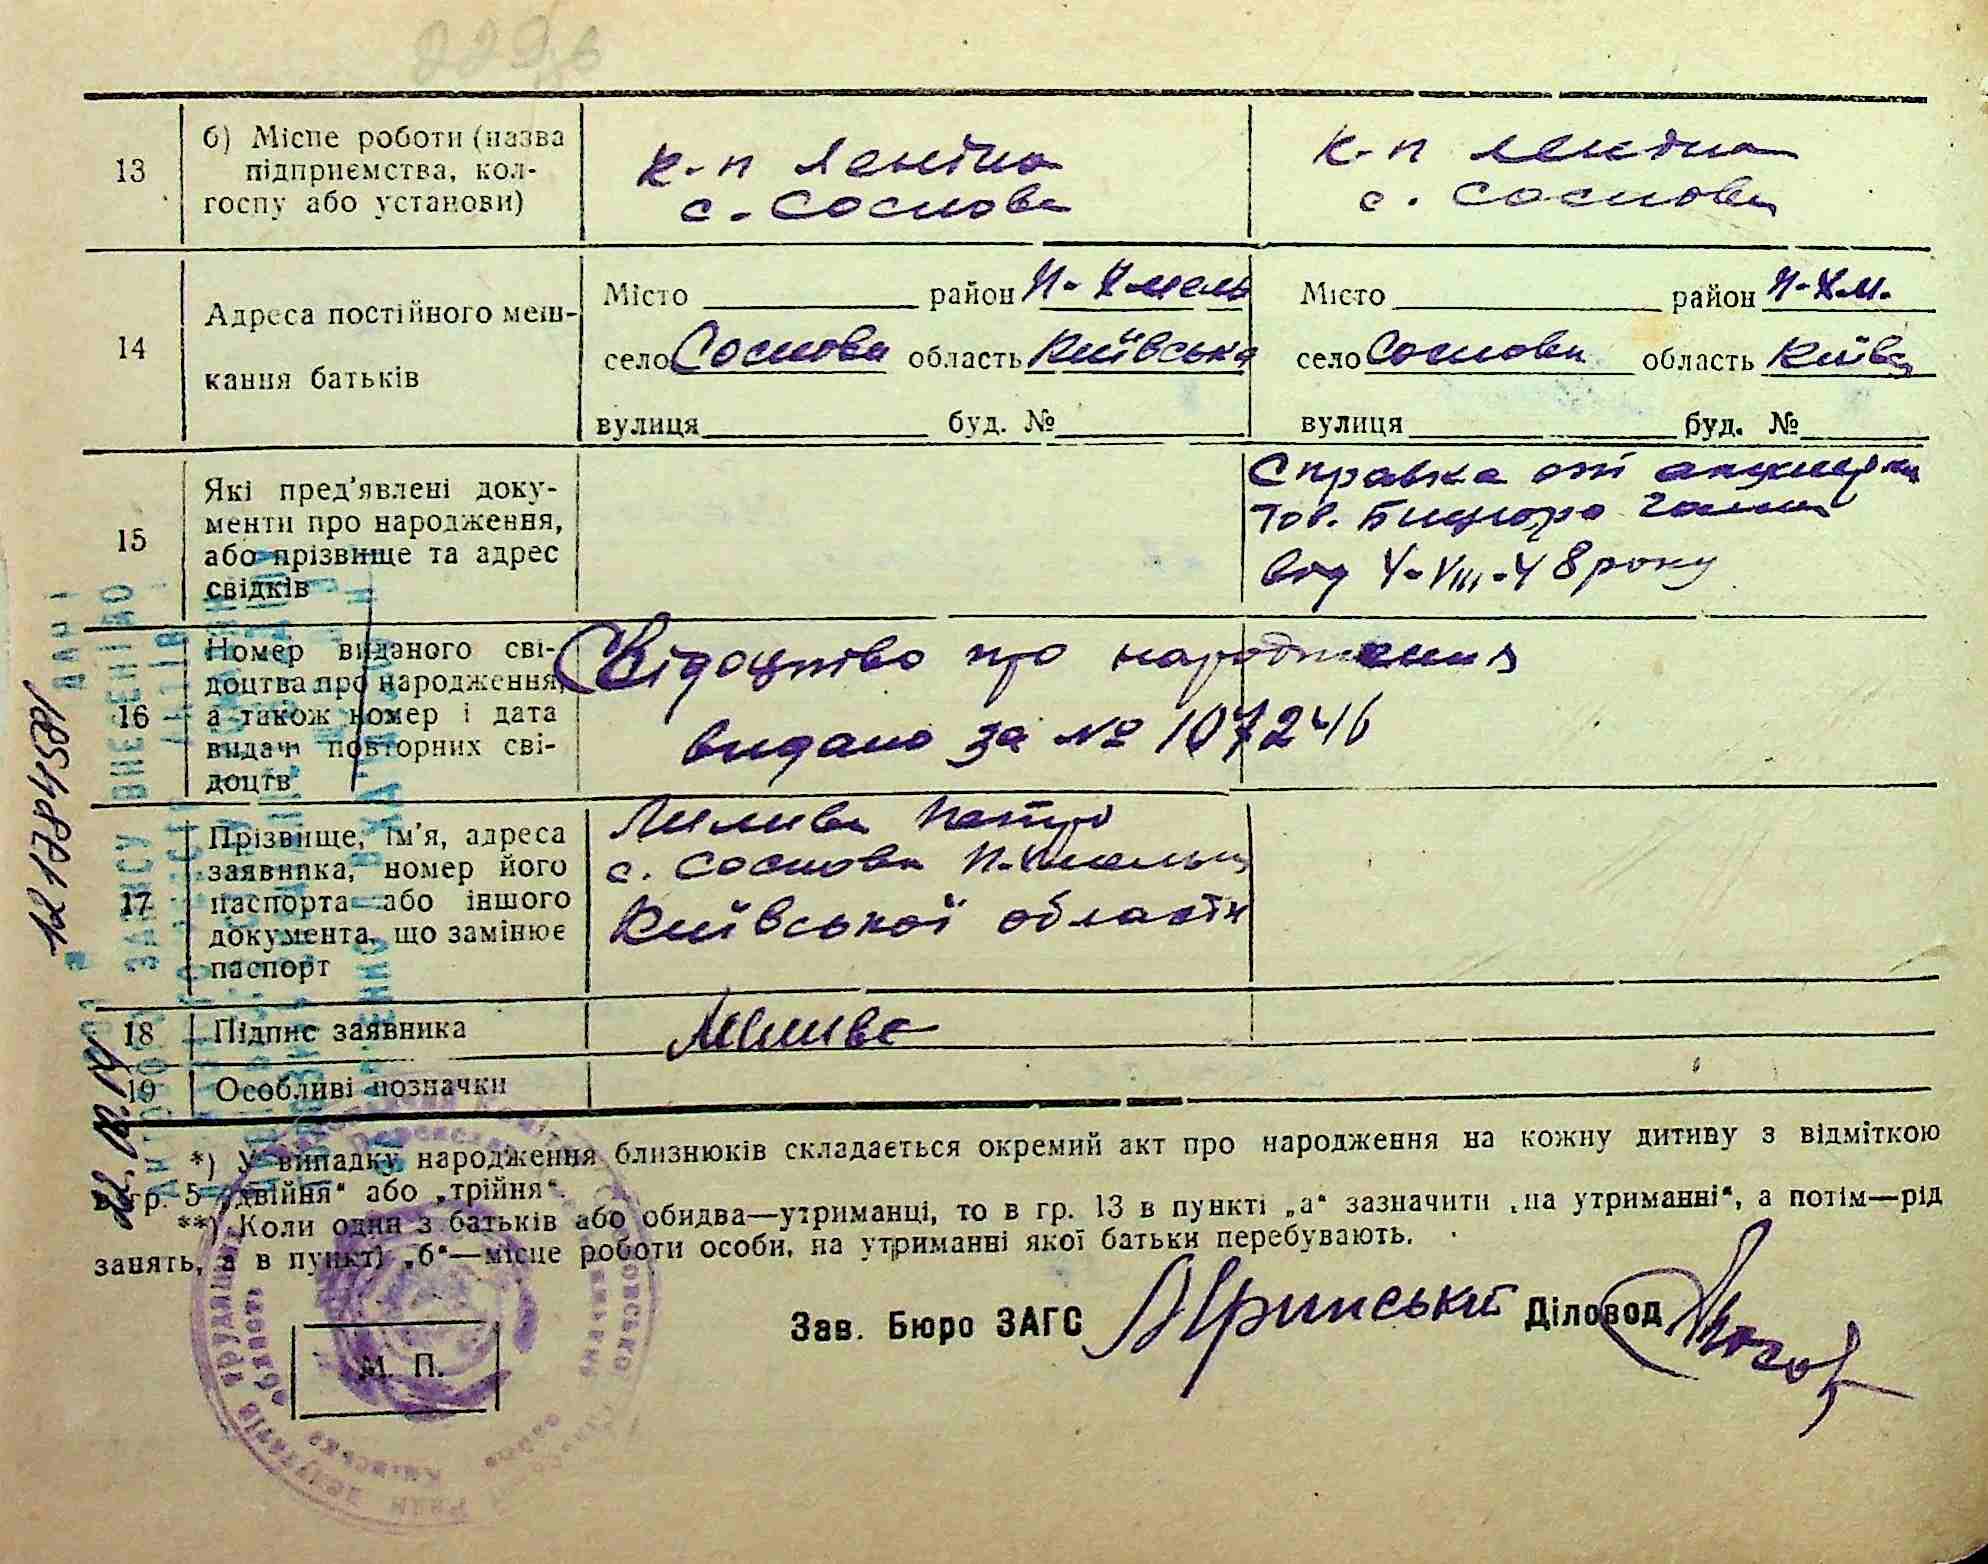 229в
13
б) Місце роботи (назва
підприємства, кол-
госпу або установи)
к-п Леніна
с. Соснова
к-п Леніна
с. Соснова
14
Адреса постійного меш-
кання батьків
Місто район П-Хмель
село Соснова область Київська
вулиця буд. №
Місто район П-Хм.
село Соснова область Київс
вулиця буд. №
15
Які пред'явлені доку-
менти про народження,
або прізвище та адрес
свідків
Справка від акушерки
тов.
від 4-VIII-48 року
16
Номер виданого сві-
доцтва про народження,
а також номер і дата
видачі повторних сві-
доцтв
Свідоцтво про народження
видано за № 107246
17
Прізвище, ім'я, адреса
заявника, номер його
паспорта або іншого
документа, що замінює
паспорт
Петро
с. Соснова П-Хмельн
Київської області
18
Підпис заявника
19
Особливі позначки
*) У випадку народження близнюків складається окремий акт про народження на кожну дитиву з відміткою
в гр. 5 „двійня" або „трійня".
**) Коли один з батьків або обидва—утриманці, то в гр. 13 в пункті „а" зазначити „на утриманні", а потім—рід
занять, а в пункті „б"—місце роботи особи, на утриманні якої батьки перебувають.
Зав. Бюро ЗАГС
Діловод
М. П.